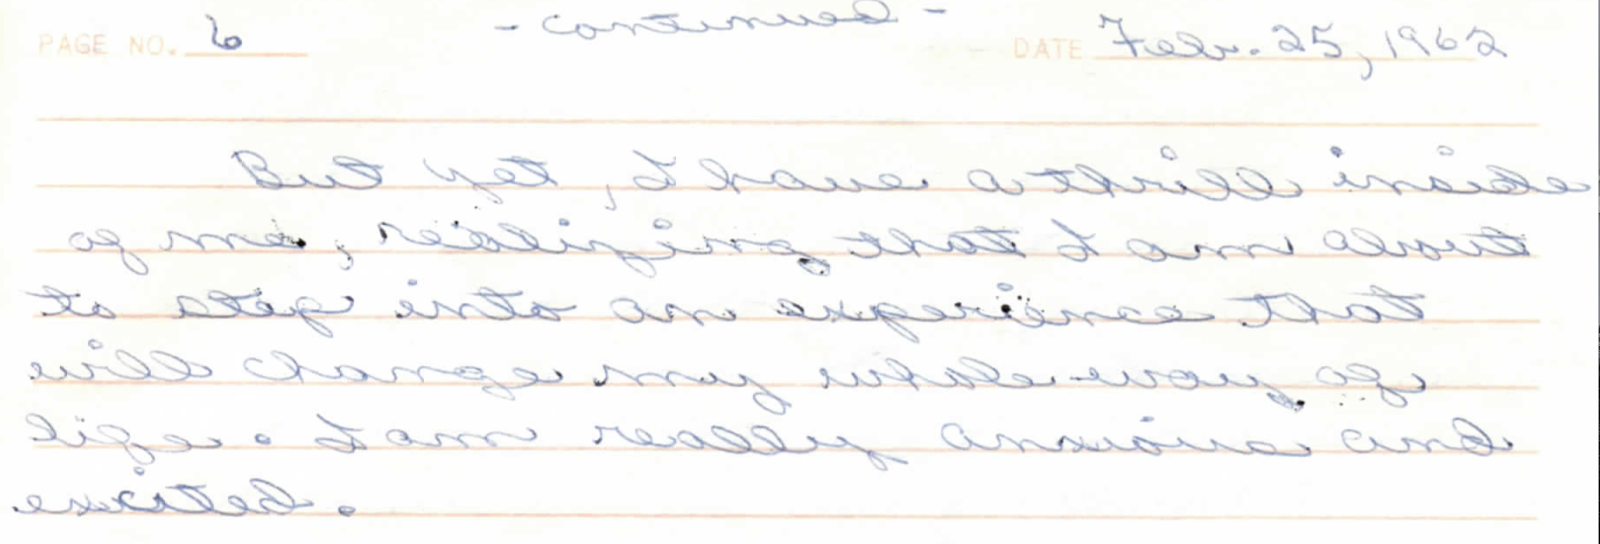 PAGE NO. 6 - continued - DATE Febr. 25, 1962
But yet, I have a thrill inside
of me, realizing that I am about
to step into an experience that
will change my whole way of
life. I am really anxious and
excited.